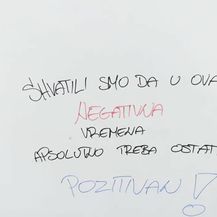 SHVATILI SMO DA U OVA
NEGATIVNA
VREMENA
APSOLUTNO TREBA OSTAT
POZITIVAN!